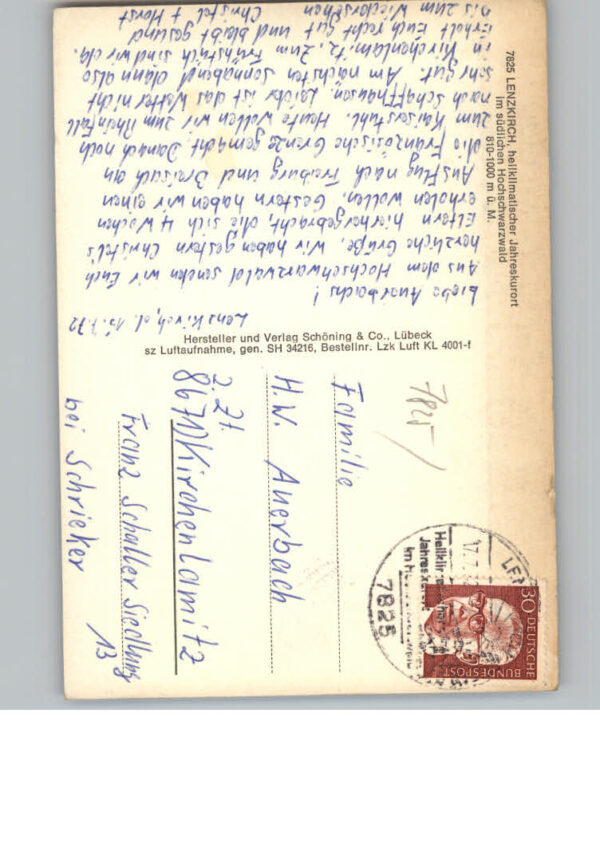 7825 LENZKIRCH, heilklimatischer Jahreskurort
im südlichen Hochschwarzwald
810-1000 m ü. M.
Lenzkirch, d. 15.7.72
Liebe Auerbachs!
Aus dem Hochschwarzwald senden wir Euch
herzliche Grüße. Wir haben gestern Christel's
Eltern hierhergebracht, die sich 4 Wochen
erholen wollen. Gestern haben wir einen
Ausflug nach Freiburg und Breisach an
die Französische Grenze gemacht. Danach noch
zum Kaiserstuhl. Heute wollen wir zum Rheinfall
nach Schaffhausen. Leider ist das Wetter nicht
sehr gut. Am nächsten Sonnabend dann also
in Kirchenlamitz. Zum Frühstück sind wir da.
Erholt Euch recht gut und bleibt gesund
bis zum Wiedersehen
Christel + Horst
Hersteller und Verlag Schöning & Co., Lübeck
sz Luftaufnahme, gen. SH 34216, Bestellnr. Lzk Luft KL 4001-f
7825
Familie
H.W. Auerbach
z.Zt.
8671 Kirchenlamitz
Franz Schaller Siedlung
13
bei Schricker
30 DEUTSCHE
BUNDESPOST
17.7.
Jahreskurort
7825